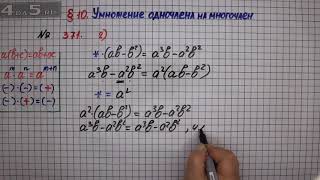 §10. Умножение одночлена на многочлен
№ 371. 2)
a(b+c)=ab+ac
aᵐ·aⁿ=aᵐ⁺ⁿ
(−)·(−)=(+)
(−)·(+)=(−)
*·(ab−b²)=a³b−a²b²
a³b−a²b²=a²(ab−b²)
*=a²
a²·(ab−b²)=a³b−a²b²
a³b−a²b²=a³b−a²b²,